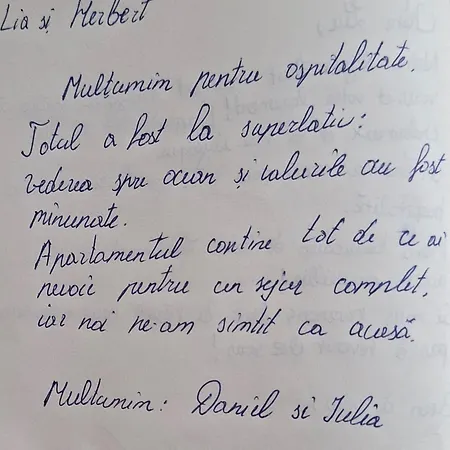 Lia și Herbert
Multumim pentru ospitalitate.
Totul a fost la superlativ:
vederea spre ocean și valurile au fost
minunate.
Apartamentul contine tot de ce ai
nevoie pentru un sejur complet,
iar noi ne-am simtit ca acasă.
Multumim: Daniel si Iulia